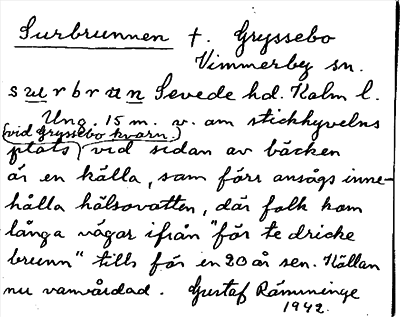 Surbrunnen t. Gryssebo
Vimmerby sn.
surbrun Sevede hd. Kalm l.
Ung. 15 m. v. om stickhyvelns
(vid Gryssebo kvarn.)
plats vid sidan av bäcken
är en källa, som förr ansågs inne-
hålla hälsovatten, där folk kom
långa vägar ifrån "för te dricke
brunn" tills för en 20 år sen. Källan
nu vanvårdad. Gustaf Rämninge
1942.